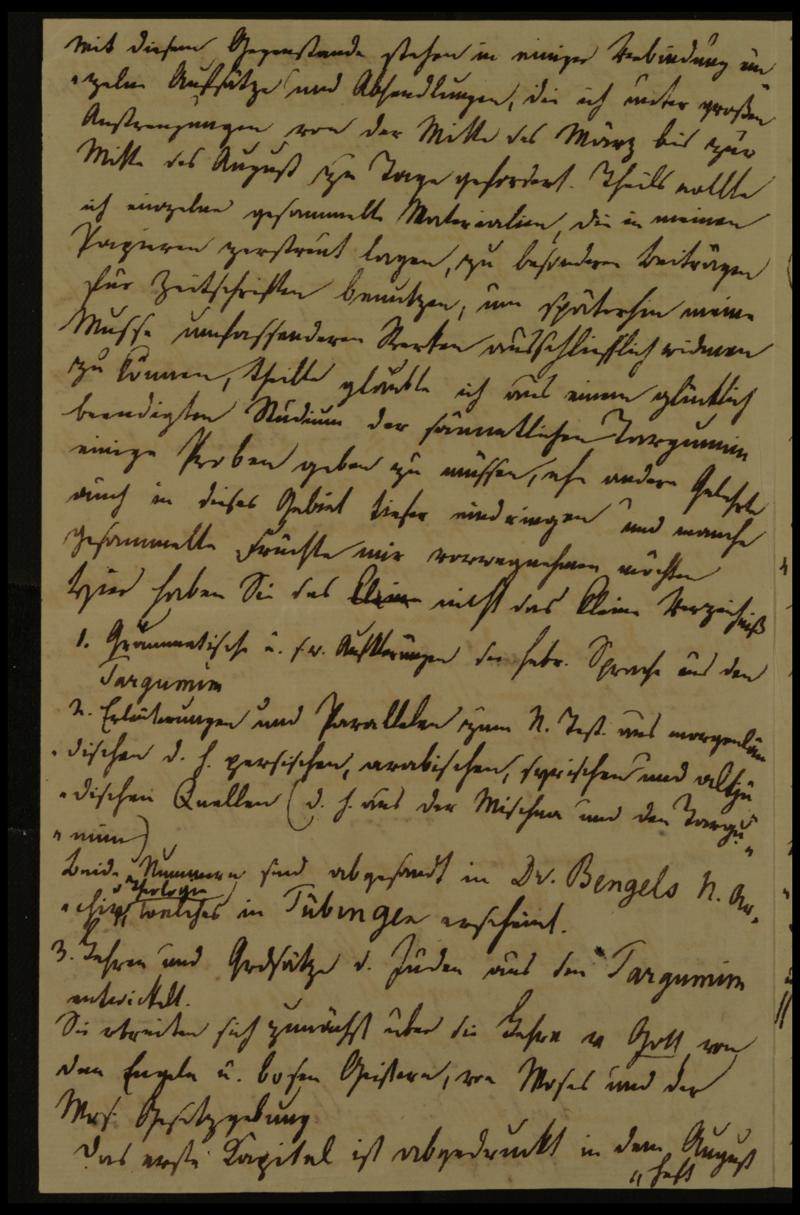 Mit diesem Gegenstande stehen in einiger Verbindung ein
„zelne Aufsätze und Abhandlungen, die ich unter großen
Anstrengungen von der Mitte des März bis zur
Mitte des August zu Tage gefördert. Theils wollte
ich einzelne gesammelte Materialien, die in meinen
Papieren zerstreut lagen, zu besonderen Beiträgen
für Zeitschriften benutzen, um späterhin meine
Musse umfassenderen Werken ausschließlich widmen
zu können, theils glaubte ich aus einem glücklich
beendigten Studium der sämmtlichen Targumim
einige Proben geben zu müssen, ehe andere Gelehrte
auch in dieses Gebiet tiefer eindringen und manche
gesammelte Früchte mir vorwegnehmen möchten
Hier haben Sie das klein nicht das kleine Verzeichniß
1. Grammatische u. Aufklärungen der hebr. Sprache aus den
Targumim
2. Erläuterungen und Parallelen zum N. Test. aus morgenlän
„dischen d. h. persischen, arabischen, syrischen und altjü
„dischen Quellen (d. h. aus der Mischna und den Targu„
„mim)
Beide Nummern sind abgesandt in Dr. Bengels N. Ar„
theologie
„chiv welches in Tübingen erscheint.
3. Lehren und Grdsätze d. Juden aus den Targumim
entwickelt.
Sie breiten sich zunächst über die Lehre v Gott, von
den Engeln u. bösen Geistern, von Moses und der
Mos. Gesetzgebung
Das erste Kapitel ist abgedruckt in dem August
„heft